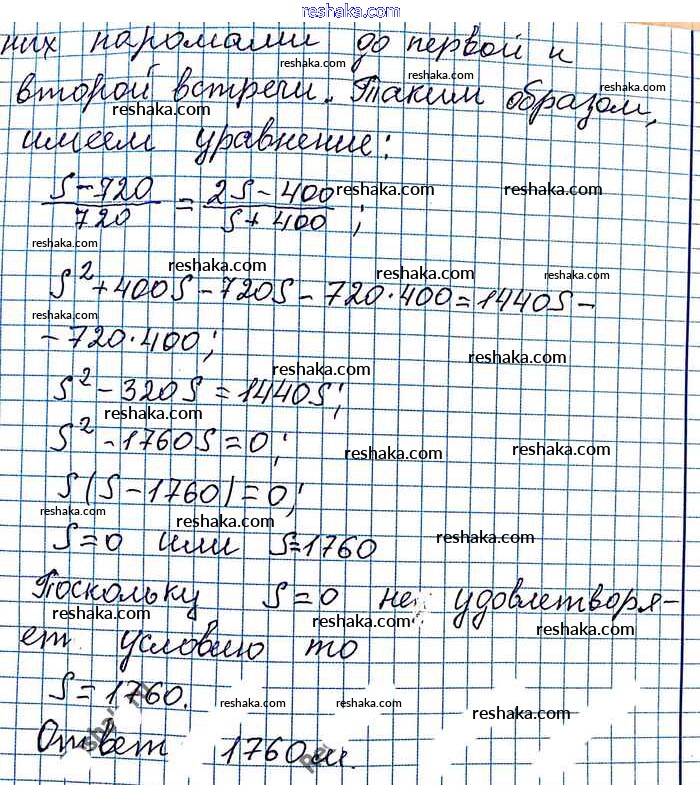 reshaka.com
них паромами до первой и
второй встречи. Таким образом,
имеем уравнение:
S-720/720 = 2S-400/S+400;
S²+400S-720S-720·400=1440S-
-720·400;
S²-320S=1440S;
S²-1760S=0;
S(S-1760)=0;
S=0 или S=1760
Поскольку S=0 не удовлетворя-
ет условию то
S=1760.
Ответ 1760м.